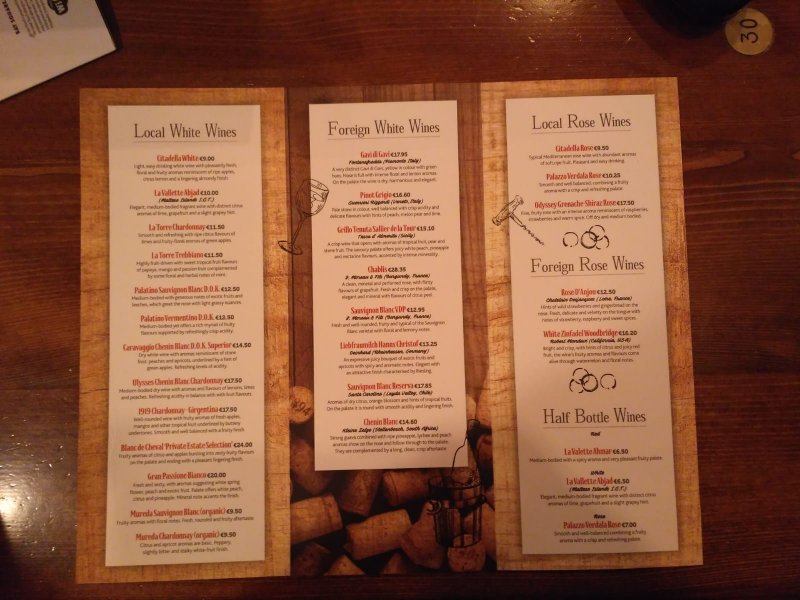 30
Local White Wines
Citadella White €9.00
Light, easy drinking white wine with pleasantly fresh,
floral and fruity aromas reminiscent of ripe apples,
citrus lemon and a lingering almondy finish.
La Vallette Abjad €10.00
(Maltese Islands I.G.T.)
Elegant, medium-bodied fragrant wine with distinct citrus
aromas of lime, grapefruit and a slight grapey hint.
La Torre Chardonnay €11.50
Smooth and refreshing with ripe citrus flavours of
limes and fruity-floral aromas of green apples.
La Torre Trebbiano €11.50
Highly fruit-driven with sweet tropical fruit flavours of
papaya, mango and passion fruit complemented
by some floral and herbal notes of mint.
Palatino Sauvignon Blanc D.O.K. €12.50
Medium-bodied with generous notes of exotic fruits and
leeches, which greet the nose with light grassy nuances.
Palatino Vermentino D.O.K. €12.50
Medium-bodied yet offers a rich myriad of fruity
flavours supported by refreshingly crisp acidity.
Caravaggio Chenin Blanc D.O.K. Superior €14.50
Dry white wine with aromas reminiscent of stone
fruit: peaches and apricots, underlined by a hint of
green apples. Refreshing levels of acidity.
Ulysses Chenin Blanc Chardonnay €17.50
Medium-bodied dry wine with aromas and flavours of lemons, limes
and peaches. Refreshing acidity in balance with with fruit flavours
1919 Chardonnay - Girgentina €17.50
Well-rounded wine with fruity aromas of fresh apples,
mangos and other tropical fruit underlined by buttery
undertones. Smooth and well-balanced with a fruity finish.
Blanc de Cheval 'Private Estate Selection' €24.00
Fruity aromas of citrus and apples bursting into zesty fruity flavours
on the palate and ending with a pleasant lingering finish.
Gran Passione Bianco €20.00
Fresh and zesty, with aromas suggesting white spring
flower, peach and exotic fruit. Palate offers white peach,
citrus and pineapple. Mineral note accents the finish.
Mureda Sauvignon Blanc (organic) €9.50
Fruity aromas with floral notes. Fresh, rounded and fruity aftertaste.
Mureda Chardonnay (organic) €9.50
Citrus and apricot aromas are basic. Peppery,
slightly bitter and stalky white-fruit finish.
Foreign White Wines
Gavi di Gavi €17.95
Fontanafredda (Piemonte Italy)
A very distinct Gavi di Gavi, yellow in colour with green
hues. Nose is full with intense floral and lemon aromas.
On the palate the wine is dry, harmonious and elegant.
Pinot Grigio €16.60
Guerrieri Rizzardi (Veneto, Italy)
Pale straw in colour, well balanced with crisp acidity and
delicate flavours with hints of peachs, melon pear and lime.
Grillo Tenuta Sallier de la Tour €15.10
Tasca d'Almerita (Sicily)
A crisp wine that opens with aromas of tropical fruit, pear and
stone fruit. The savoury palate offers juicy white peach, pineapple
and nectarine flavours, accented by intense minerality.
Chablis €28.35
J. Moreau & Fils (Burgundy, France)
A clean, mineral and perfumed nose, with flinty
flavours of grapefruit. Fresh and crisp on the palate,
elegant and mineral with flavours of citrus peel.
Sauvignon Blanc VDP €12.95
J. Moreau & Fils (Burgundy, France)
Fresh and well-rounded, fruity and typical of the Sauvignon
Blanc varietal with floral and lemony notes.
Liebfraumilch Hanns Christof €13.25
Deinhard (Rheinhessen, Germany)
An expressive juicy bouquet of exotic fruits and
apricots with spicy and aromatic notes. Elegant with
an attractive finish characterised by Riesling.
Sauvignon Blanc Reserva €17.85
Santa Carolina (Leyda Valley, Chile)
Aromas of dry citrus, orange blossom and hints of tropical fruits.
On the palate it is round with smooth acidity and lingering finish.
Chenin Blanc €14.60
Kleine Zalze (Stellenbosch, South Africa)
Strong guava combined with ripe pineapple, lychee and peach
aromas show on the nose and follow through to the palate.
They are complemented by a long, clean, crisp aftertaste
Local Rose Wines
Citadella Rose €9.50
Typical Mediterranean rose wine with abundant aromas
of soft ripe fruit. Pleasant and easy drinking.
Palazzo Verdala Rose €10.25
Smooth and well balanced, combining a fruity
aroma with a crisp and refreshing palate.
Odyssey Grenache Shiraz Rose €17.50
Fine, fruity rose with an intense aroma reminiscent of raspberries,
strawberries and warm spices. Off dry and medium bodied.
Foreign Rose Wines
Rose D'Anjou €12.50
Chatelain Desjacques (Loire, France)
Hints of wild strawberries and gingerbread on the
nose. Fresh, delicate and velvety on the tongue with
notes of strawberry, raspberry and sweet spices.
White Zinfadel Woodbridge €16.20
Robert Mondavi (California, USA)
Bright and crisp, with hints of citrus and juicy red
fruit, the wine's fruity aromas and flavours come
alive through watermelon and floral notes.
Half Bottle Wines
Red
La Valette Ahmar €6.50
Medium-bodied with a spicy aroma and very pleasant fruity palate.
White
La Vallette Abjad €6.50
(Maltese Islands I.G.T.)
Elegant, medium-bodied fragrant wine with distinct citrus
aromas of lime, grapefruit and a slight grapey hint.
Rose
Palazzo Verdala Rose €7.00
Smooth and well-balanced combining a fruity
aroma with a crisp and refreshing palate.